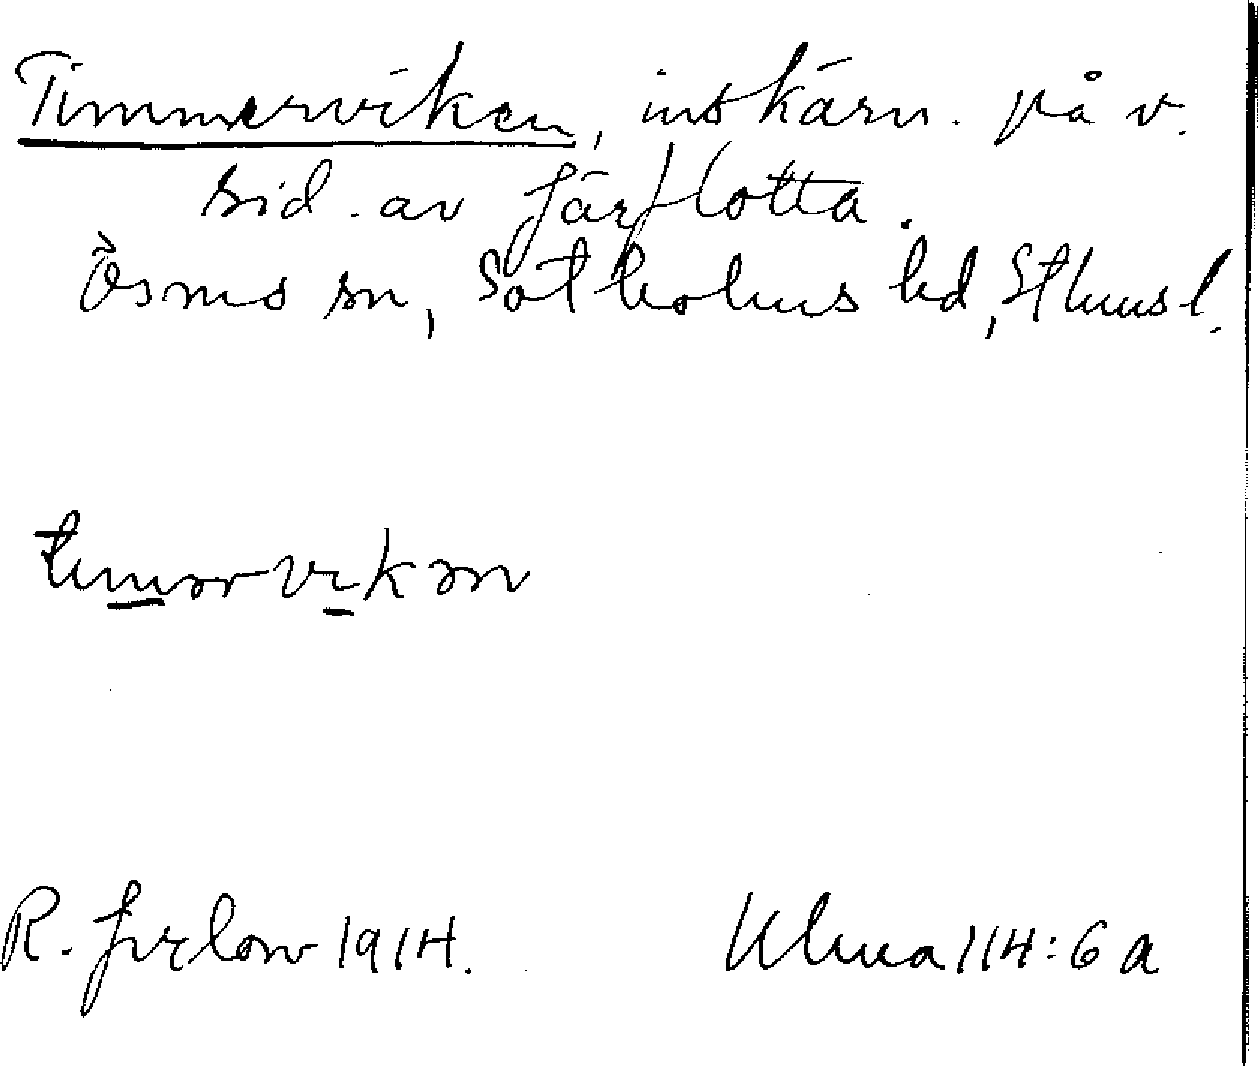 Timmerviken, inskärn. på v.
sid. av Järflotta.
Ösmo sn, Sotholms hd, Sthmsl.
timərvikən
R. Jirlow 1914. Ulma 114:6 a